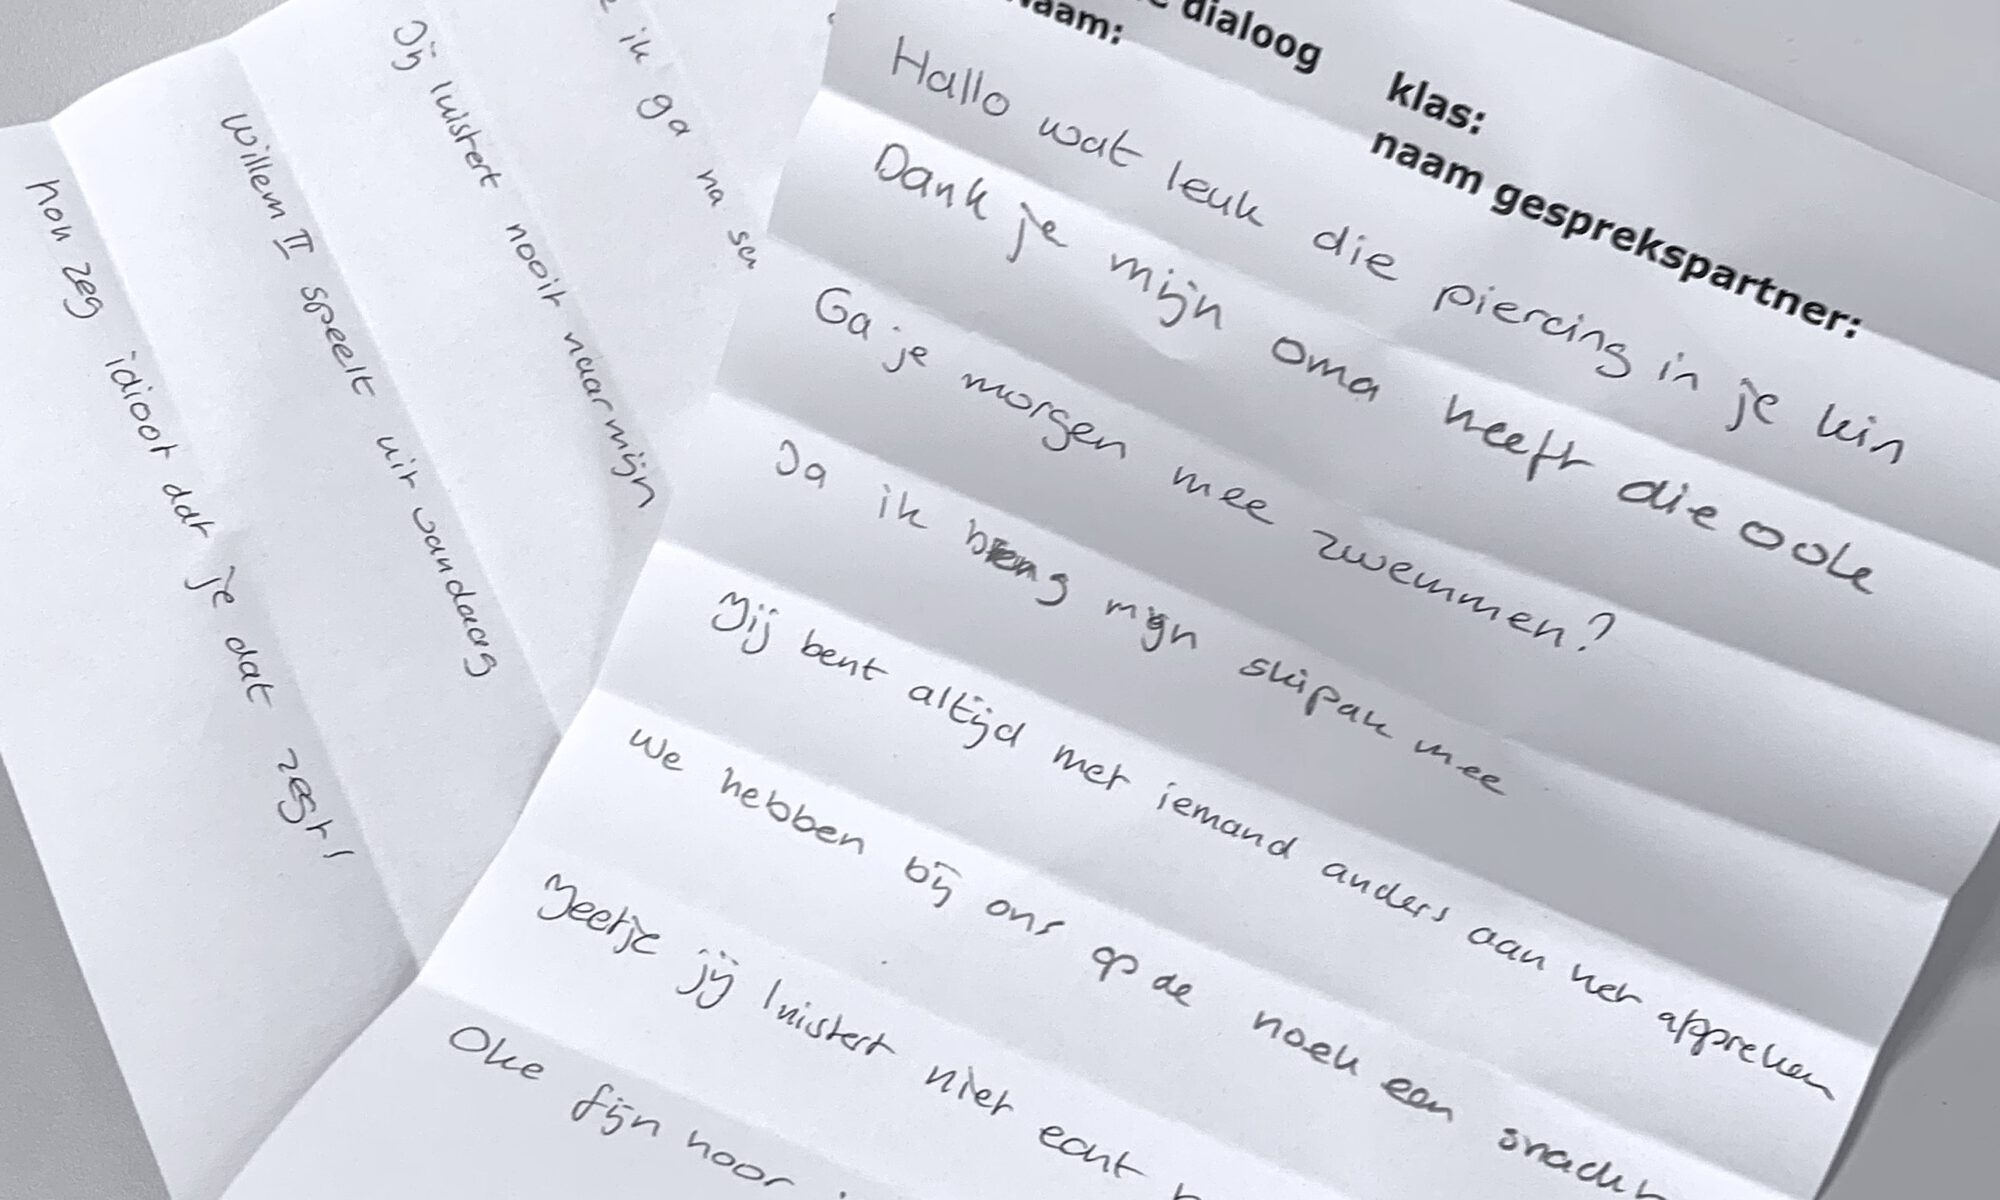 dialoog
naam:
klas:
naam gesprekspartner:
Hallo wat leuk die piercing in je kin
Dank je mijn oma heeft die ook
Ga je morgen mee zwemmen?
Ja ik breng mijn skipak mee
Jij bent altijd met iemand anders aan het afspreken
We hebben bij ons op de hoek een
Jeetje jij luistert niet echt
Oke fijn hoor
ik ga na
Jij luistert nooit naar mijn
Willem II speelt uit vandaag
Hoh zeg idioot dat je dat zegt!